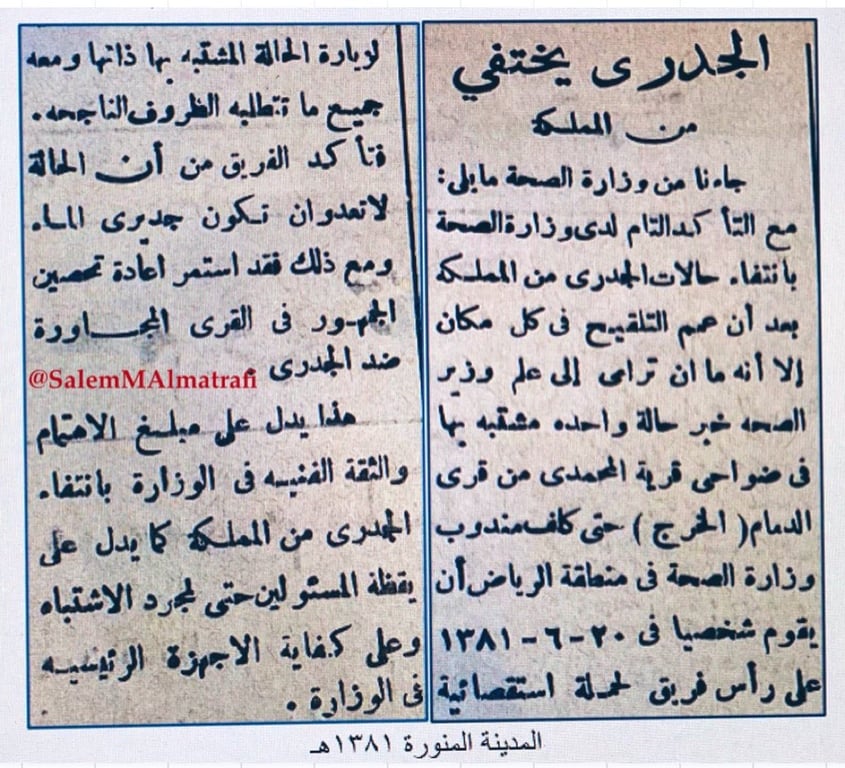 الجدرى يختفي
من المملكة
جاءنا من وزارة الصحة مايلى:
مع التأكد التام لدى وزارة الصحة
بانتفاء حالات الجدرى من المملكة
بعد أن عمم التلقيح فى كل مكان
إلا أنه ما ان ترامى إلى علم وزير
الصحه خبر حالة واحده مشتبه بها
فى ضواحى قرية المحمدى من قرى
الدمام ( الخرج ) حتى كلف مندوب
وزارة الصحة فى منطقة الرياض أن
يقوم شخصيا فى ٢٠-٦-١٣٨١
على رأس فريق لحملة استقصائية
لوبارة الحالة المشتبه بها ذاتها ومعه
جميع ما تتطلبه الظروف الناجحه.
فتأكد الفريق من أن الحالة
لاتعدوان تكون جديرى الماء
ومع ذلك فقد استمر اعادة تحصين
الجمهور فى القرى المجاورة
ضد الجدرى .
@SalemMAlmatrafi
هذا يدل على مبلغ الاهتمام
والثقة الفنيه فى الوزارة بانتفاء
الجدرى من المملكة كما يدل على
يقظة المسئولين حتى لمجرد الاشتباه
وعلى كفاية الاجهزة الرئيسيه
فى الوزارة .
المدينة المنورة ١٣٨١هـ